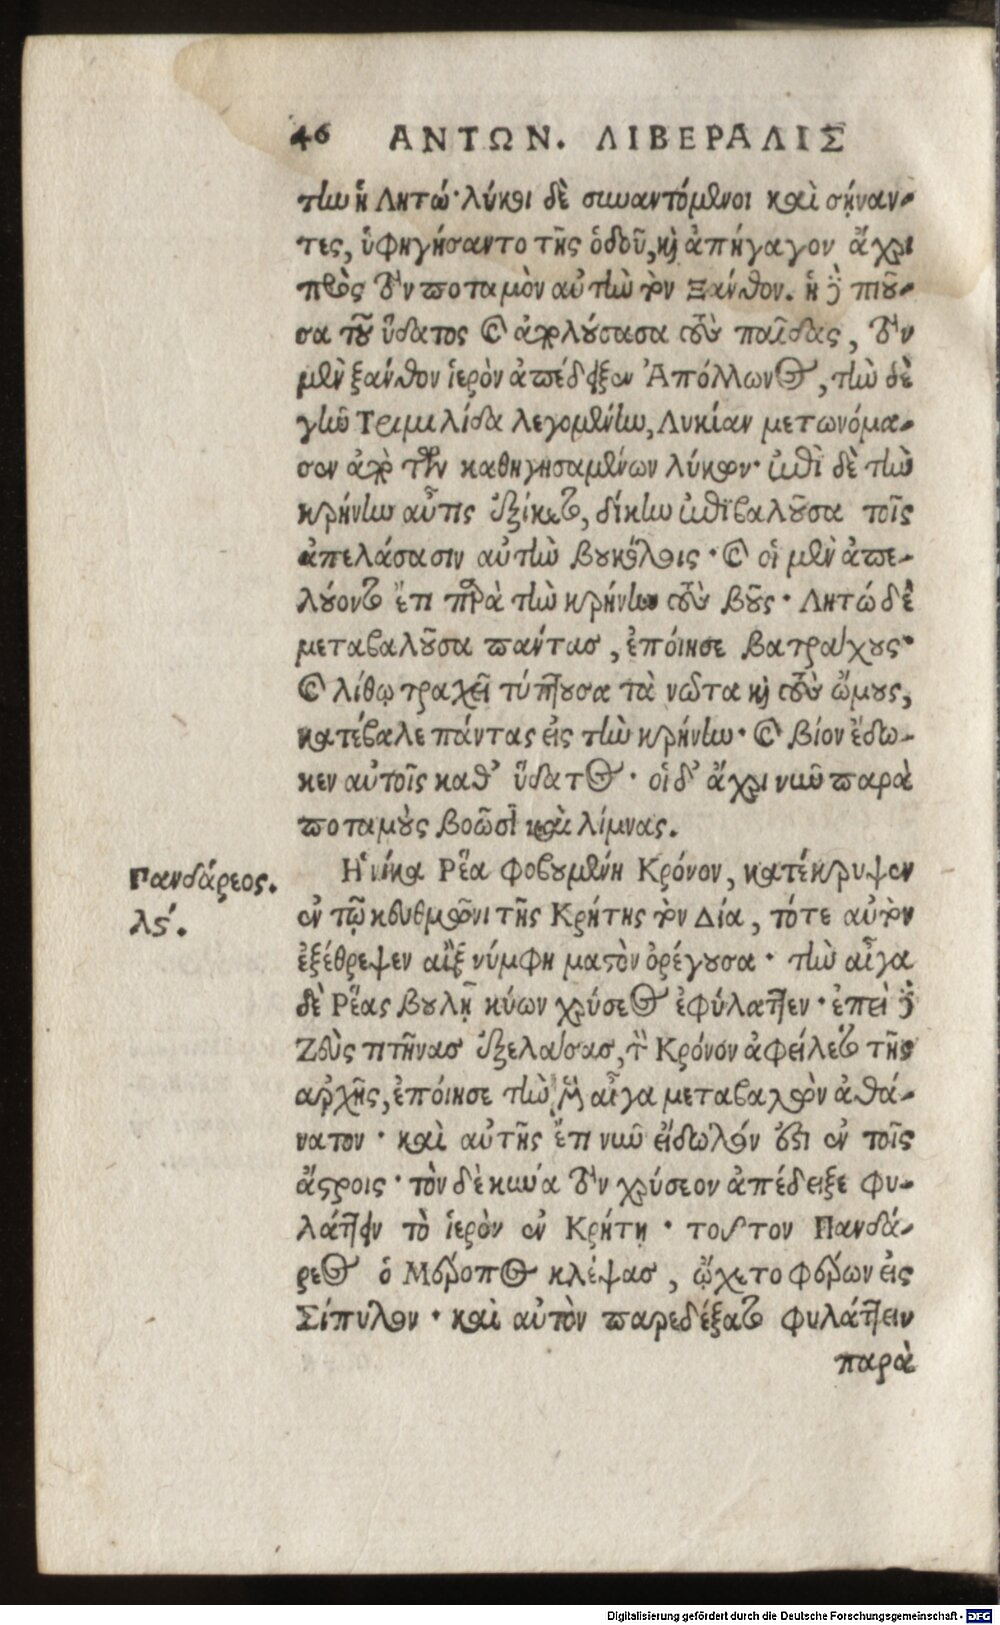 46 ΑΝΤΩΝ. ΛΙΒΕΡΑΛΙΣ
τὴν ἡ Λητώ· λύκοι δὲ συναντόμενοι καὶ σήναν-
τες, ὑφηγήσαντο τῆς ὁδοῦ, καὶ ἀπήγαγον ἄχρι
πρὸς τὸν ποταμὸν αὐτὴν τὸν Ξάνθον. ἡ δὲ πιοῦ-
σα τοῦ ὕδατος καὶ ἀπολούσασα τοὺς παῖδας, τὸν
μὲν ξάνθον ἱερὸν ἀπέδειξεν Ἀπόλλωνος, τὴν δὲ
γῆν Τριμιλίδα λεγομένην, Λυκίαν μετωνόμα-
σεν ἀπὸ τῶν καθηγησαμένων λύκων· ἐπὶ δὲ τὴν
κρήνην αὖτις ἐξίκετο, δίκην ἐπιβαλοῦσα τοῖς
ἀπελάσασιν αὐτὴν βουκόλοις· καὶ οἱ μὲν ἀπε-
λύοντο ἔτι παρὰ τὴν κρήνην τοὺς βοῦς· Λητὼ δὲ
μεταβαλοῦσα πάντας, ἐπόιησε βατράχους·
καὶ λίθῳ τραχεῖ τύπτουσα τὰ νῶτα καὶ τοὺς ὤμους,
κατέβαλε πάντας εἰς τὴν κρήνην· καὶ βίον ἔδω-
κεν αὐτοῖς καθ' ὕδατος· οἱ δ' ἄχρι νῦν παρὰ
ποταμοὺς βοῶσι καὶ λίμνας.
Πανδάρεος.
λϛ΄.
Ἡνίκα Ῥέα φοβουμένη Κρόνον, κατέκρυψεν
ἐν τῷ κευθμῶνι τῆς Κρήτης τὸν Δία, τότε αὐτὸν
ἐξέθρεψεν αἲξ νύμφη μαστὸν ὀρέγουσα· τὴν αἶγα
δὲ Ῥέας βουλῇ κύων χρύσεος ἐφύλαττεν· ἐπεὶ δὲ
Ζεὺς τιτῆνας ἐξελάσας, τὸν Κρόνον ἀφείλετο τῆς
ἀρχῆς, ἐπόιησε τὴν μὲν αἶγα μεταβαλὼν ἀθά-
νατον· καὶ αὐτῆς ἔτι νῦν εἴδωλόν ἐστι ἐν τοῖς
ἄστροις· τὸν δὲ κύνα τὸν χρύσεον ἀπέδειξε φυ-
λάττειν τὸ ἱερὸν ἐν Κρήτῃ· τοῦτον Πανδά-
ρεος ὁ Μέροπος κλέψας, ᾤχετο φέρων εἰς
Σίπυλον· καὶ αὐτὸν παρεδέξατο φυλάττειν
παρὰ
Digitalisierung gefördert durch die Deutsche Forschungsgemeinschaft - DFG